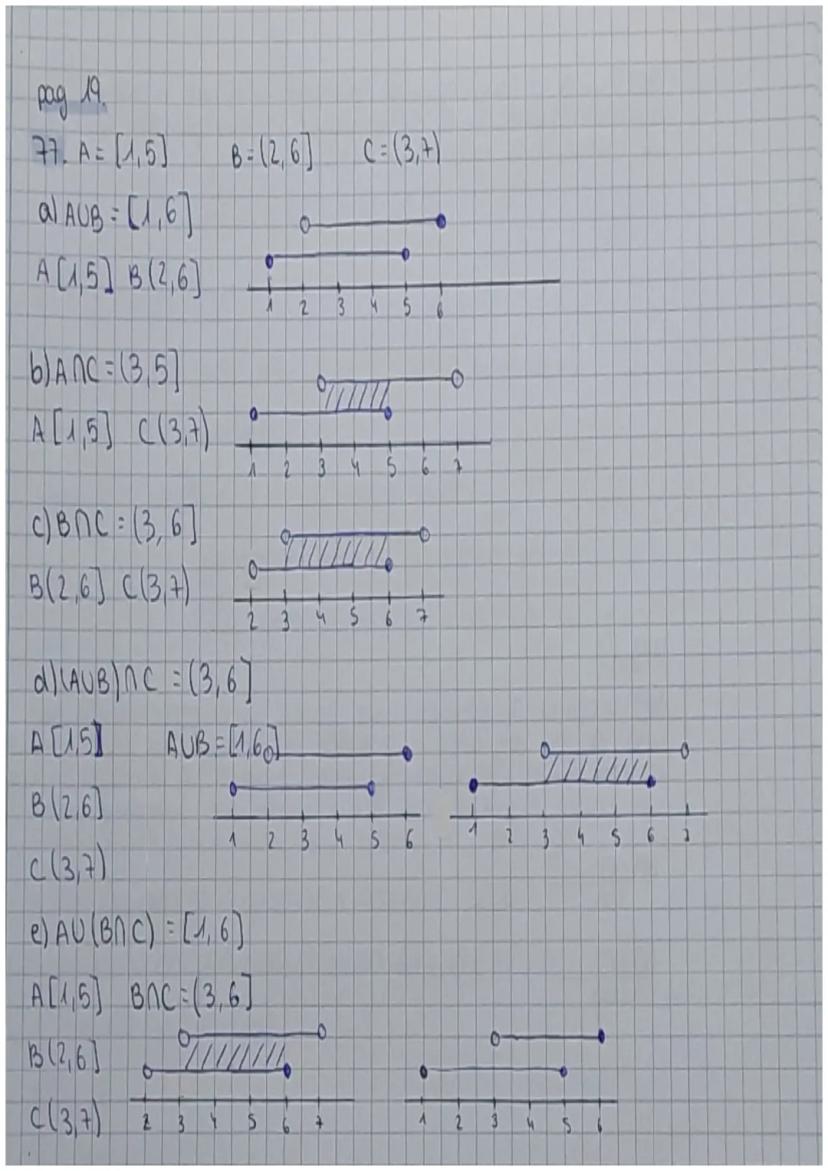 pag 19.
77. A = [1,5] B = (2,6] C = (3,7)
a) A∪B = [1,6]
A [1,5] B (2,6]
1 2 3 4 5 6
b) A∩C = (3,5]
A [1,5] C (3,7)
1 2 3 4 5 6 7
c) B∩C = (3,6]
B (2,6] C (3,7)
2 3 4 5 6 7
d) (A∪B)∩C = (3,6]
A [1,5] A∪B = [1,6]
B (2,6]
1 2 3 4 5 6 1 2 3 4 5 6 7
C (3,7)
e) A∪(B∩C) = [1,6]
A [1,5] B∩C = (3,6]
B (2,6]
C (3,7) 2 3 4 5 6 7 1 2 3 4 5 6